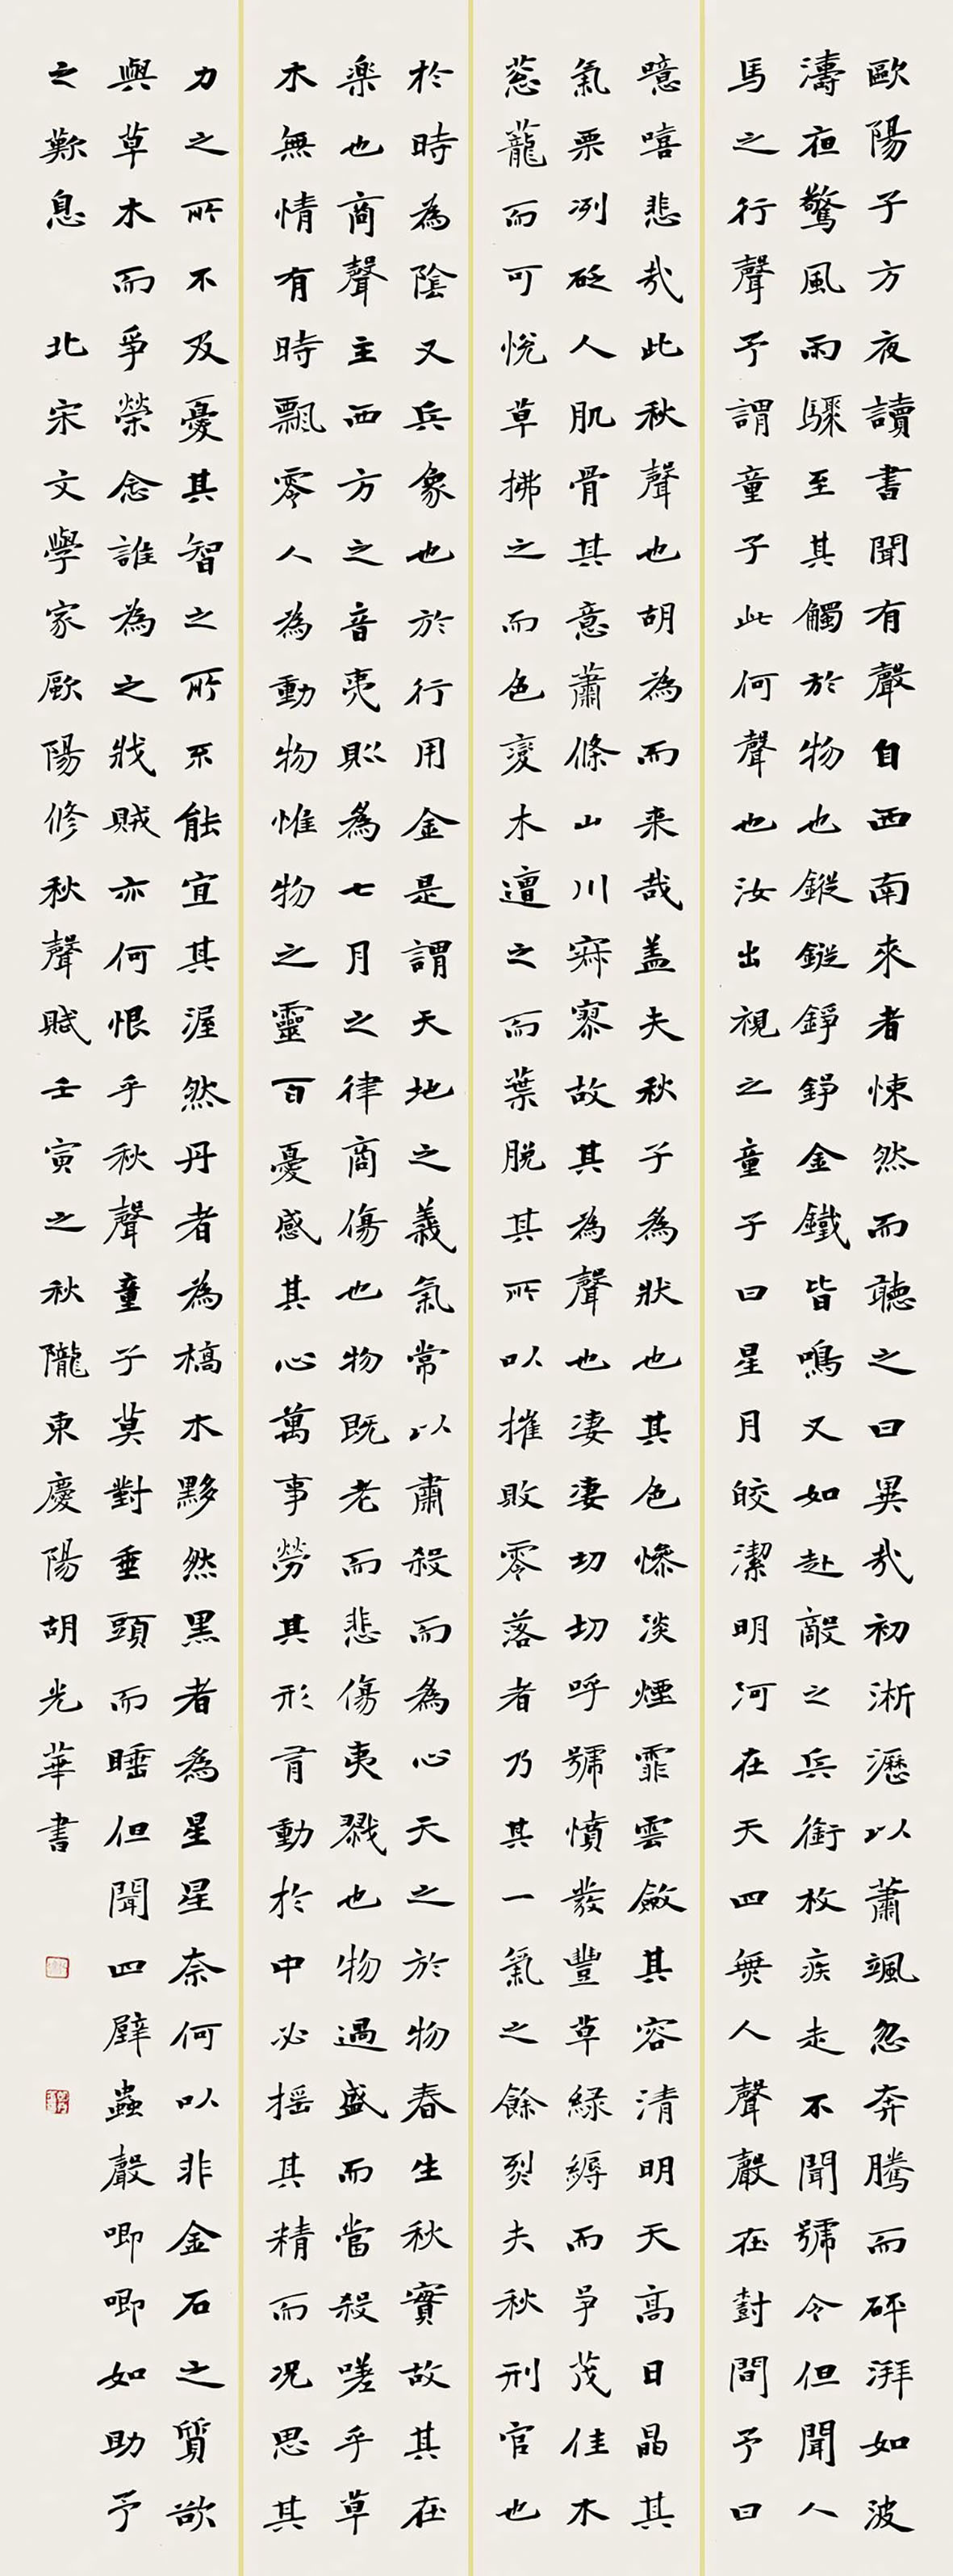 歐陽子方夜讀書聞有聲自西南來者悚然而聽之曰異哉初淅瀝以蕭颯忽奔騰而砰湃如波
濤夜驚風雨驟至其觸於物也鏦鏦錚錚金鐵皆鳴又如赴敵之兵銜枚疾走不聞號令但聞人
馬之行聲予謂童子此何聲也汝出視之童子曰星月皎潔明河在天四無人聲聲在樹間予曰
噫嘻悲哉此秋聲也胡為而来哉盖夫秋子為狀也其色慘淡煙霏雲斂其容清明天高日晶其
氣栗冽砭人肌骨其意蕭條山川寂寥故其為聲也凄凄切切呼號憤發豐草綠縟而爭茂佳木
蔥蘢而可悅草拂之而色變木遭之而葉脫其所以摧敗零落者乃其一氣之餘烈夫秋刑官也
於時為陰又兵象也於行用金是謂天地之義氣常以肅殺而為心天之於物春生秋實故其在
楽也商聲主西方之音夷則為七月之律商傷也物既老而悲傷夷戮也物過盛而當殺嗟乎草
木無情有時飄零人為動物惟物之靈百憂感其心萬事勞其形有動於中必搖其精而況思其
力之所不及憂其智之所不能宜其渥然丹者為槁木黟然黑者為星星奈何以非金石之質欲
與草木而爭榮念誰為之戕賊亦何恨乎秋聲童子莫對垂頭而睡但聞四壁蟲聲唧唧如助予
之歎息 北宋文學家歐陽修秋聲賦壬寅之秋隴東慶陽胡光華書